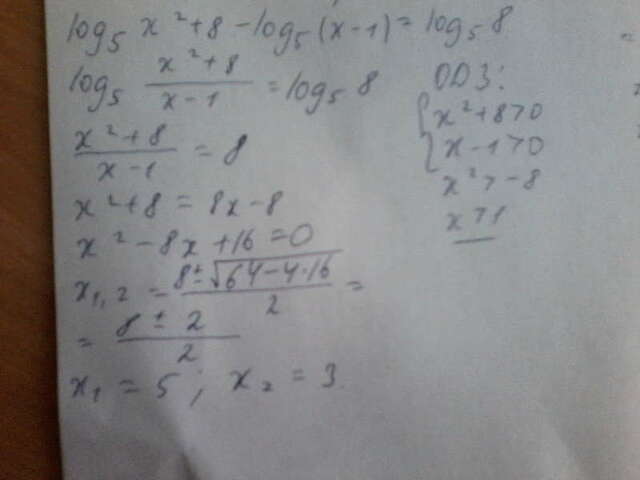 log₅ x² + 8 - log₅ (x - 1) = log₅ 8
log₅ (x² + 8)/(x - 1) = log₅ 8
(x² + 8)/(x - 1) = 8
x² + 8 = 8x - 8
x² - 8x + 16 = 0
x₁,₂ = (8 ± √(64 - 4·16))/2 =
= (8 ± 2)/2
x₁ = 5; x₂ = 3
ОДЗ:
{ x² + 8 > 0
x - 1 > 0
x² > -8
x > 1